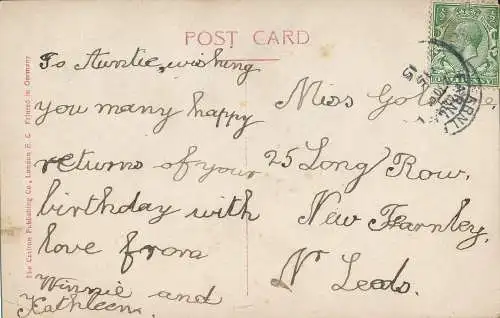 POST CARD
To Auntie, wishing
you many happy
returns of your
birthday with
love from
Winnie and
Kathleen.
Miss
25 Long Row,
New Farnley,
Nr Leeds.
The Carlton Publishing Co., London E. C. Printed in Germany